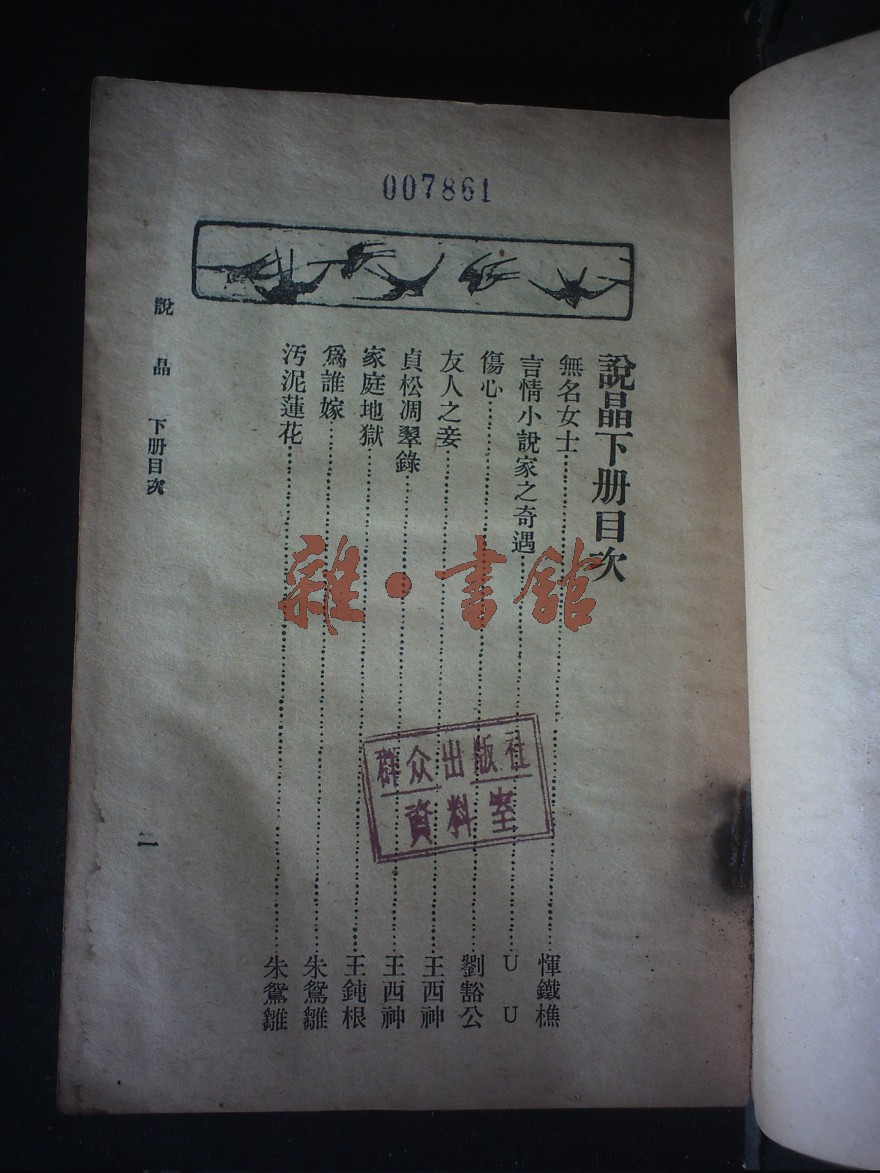 007861
說晶下册目次
無名女士……惲鐵樵
言情小說家之奇遇……U U
傷心……劉豁公
友人之妾……王西神
貞松凋翠錄……王西神
家庭地獄……王鈍根
爲誰嫁……朱鴛雛
汚泥蓮花……朱鴛雛
說晶 下册目次
一
雜·書館
群众出版社
資料室